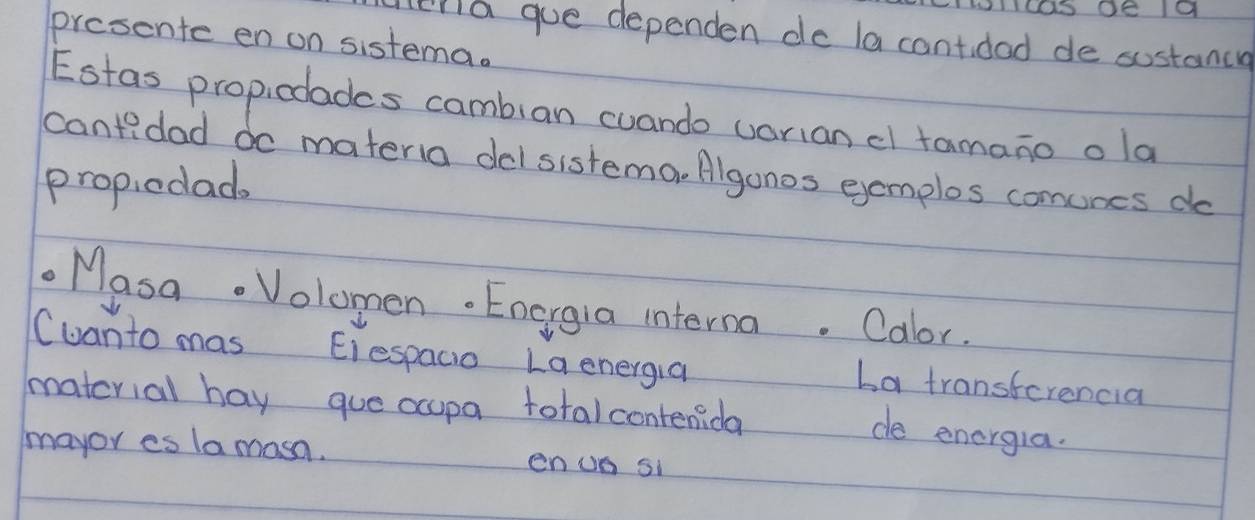 que dependen de la cantidad de sustancia
presente en un sistema.
Estas propiedades cambian cuando varian el tamaño o la
cantidad de materia del sistema. Algunos ejemplos comunes de
propiedad.
• Masa • Volumen • Energia interna • Calor.
Cuanto mas El espacio La energia La transferencia
material hay que ocupa total contenida de energia.
mayor es la masa. en un si